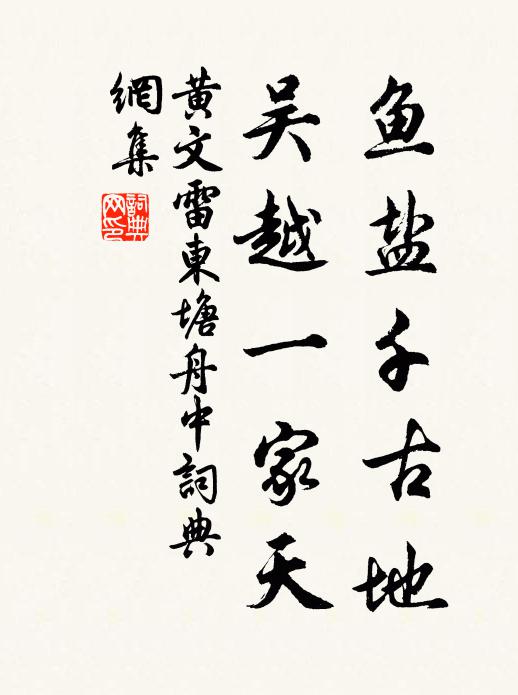 鱼盐千古地
吴越一家天
黄文雷東塘舟中詞典
網集
詞典
网印